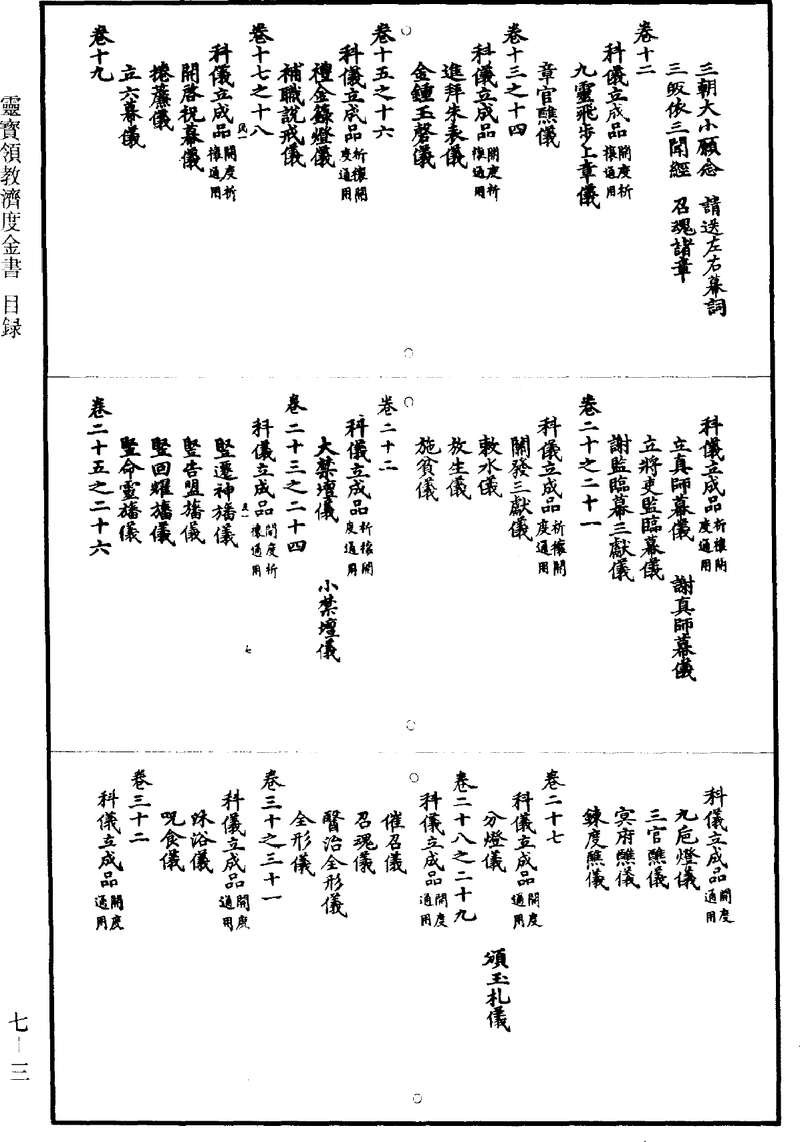 三朝大小願念　請送左右幕詞
三皈依三聞經　召魂諸章
卷十二
科儀立成品 開度祈禳通用
九靈飛步上章儀
章官醮儀
卷十三之十四
科儀立成品 開度祈禳通用
進拜朱表儀
金鍾玉磬儀
卷十五之十六
科儀立成品 祈禳開度通用
禮金籙燈儀
補職說戒儀
卷十七之十八
科儀立成品 開度祈禳通用
開啓祝幕儀
捲簾儀
立六幕儀
卷十九
科儀立成品 祈禳開度通用
立真師幕儀　謝真師幕儀
立將吏監臨幕儀
謝監臨幕三獻儀
卷二十之二十一
科儀立成品 祈禳開度通用
關發三獻儀
敕水儀
放生儀
施貧儀
卷二十二
科儀立成品 祈禳開度通用
大禁壇儀　小禁壇儀
卷二十三之二十四
科儀立成品 開度祈禳通用
竪遷神旛儀
竪告盟旛儀
竪回耀旛儀
竪命靈旛儀
卷二十五之二十六
科儀立成品 開度通用
九巵燈儀
三官醮儀
冥府醮儀
鍊度醮儀
卷二十七
科儀立成品 開度通用
分燈儀　頒玉札儀
卷二十八之二十九
科儀立成品 開度通用
催召儀
召魂儀
醫治全形儀
全形儀
卷三十之三十一
科儀立成品 開度通用
沐浴儀
呪食儀
卷三十二
科儀立成品 開度通用
靈寶領教濟度金書　目録
七—三